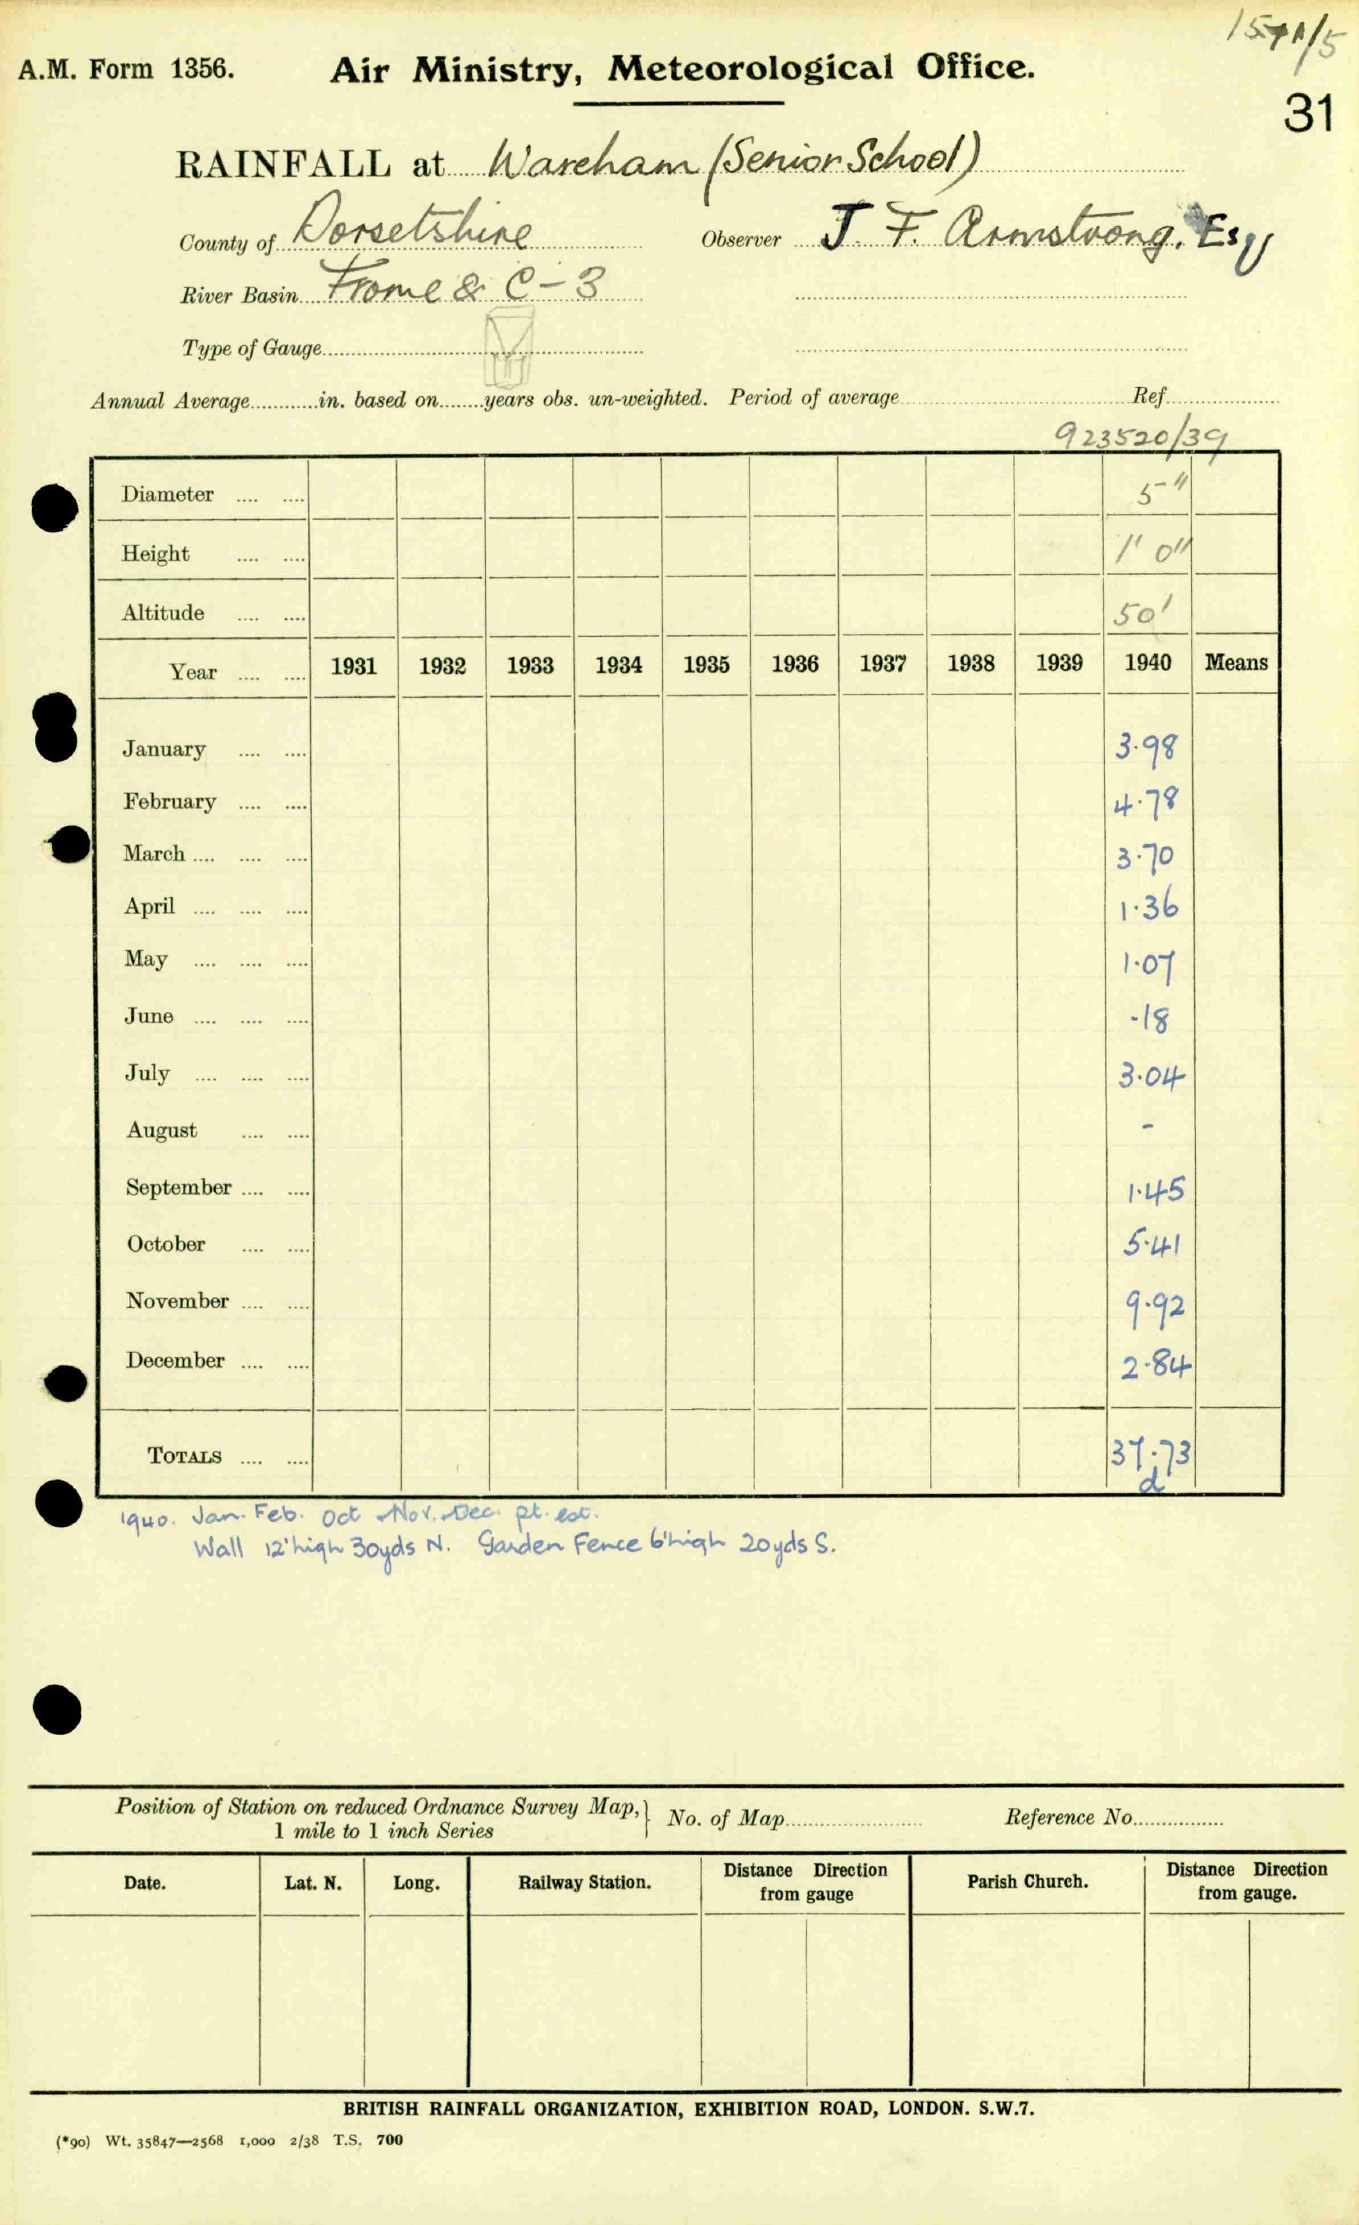 1571/5
A.M. Form 1356. Air Ministry, Meteorological Office.
31
RAINFALL at Wareham (Senior School)
County of Dorsetshire Observer J. F. Armstrong. Esq
River Basin Frome & C-3
Type of Gauge
Annual Average in. based on years obs. un-weighted. Period of average Ref
923520/39
Diameter .... .... 5"
Height .... .... 1' 0"
Altitude .... .... 50'
Year .... .... 1931 1932 1933 1934 1935 1936 1937 1938 1939 1940 Means
January .... .... 3.98
February .... .... 4.78
March .... .... .... 3.70
April .... .... .... 1.36
May .... .... .... 1.07
June .... .... .... .18
July .... .... .... 3.04
August .... .... -
September .... .... 1.45
October .... .... 5.41
November .... .... 9.92
December .... .... 2.84
TOTALS .... .... 37.73
d
1940. Jan. Feb. Oct Nov. Dec. pt. est.
Wall 12' high 30yds N. Garden Fence 6' high 20yds S.
Position of Station on reduced Ordnance Survey Map, } No. of Map Reference No.
1 mile to 1 inch Series
Date. Lat. N. Long. Railway Station. Distance Direction from gauge Parish Church. Distance Direction from gauge.
BRITISH RAINFALL ORGANIZATION, EXHIBITION ROAD, LONDON. S.W.7.
(*90) Wt. 35847—2568 1,000 2/38 T.S. 700